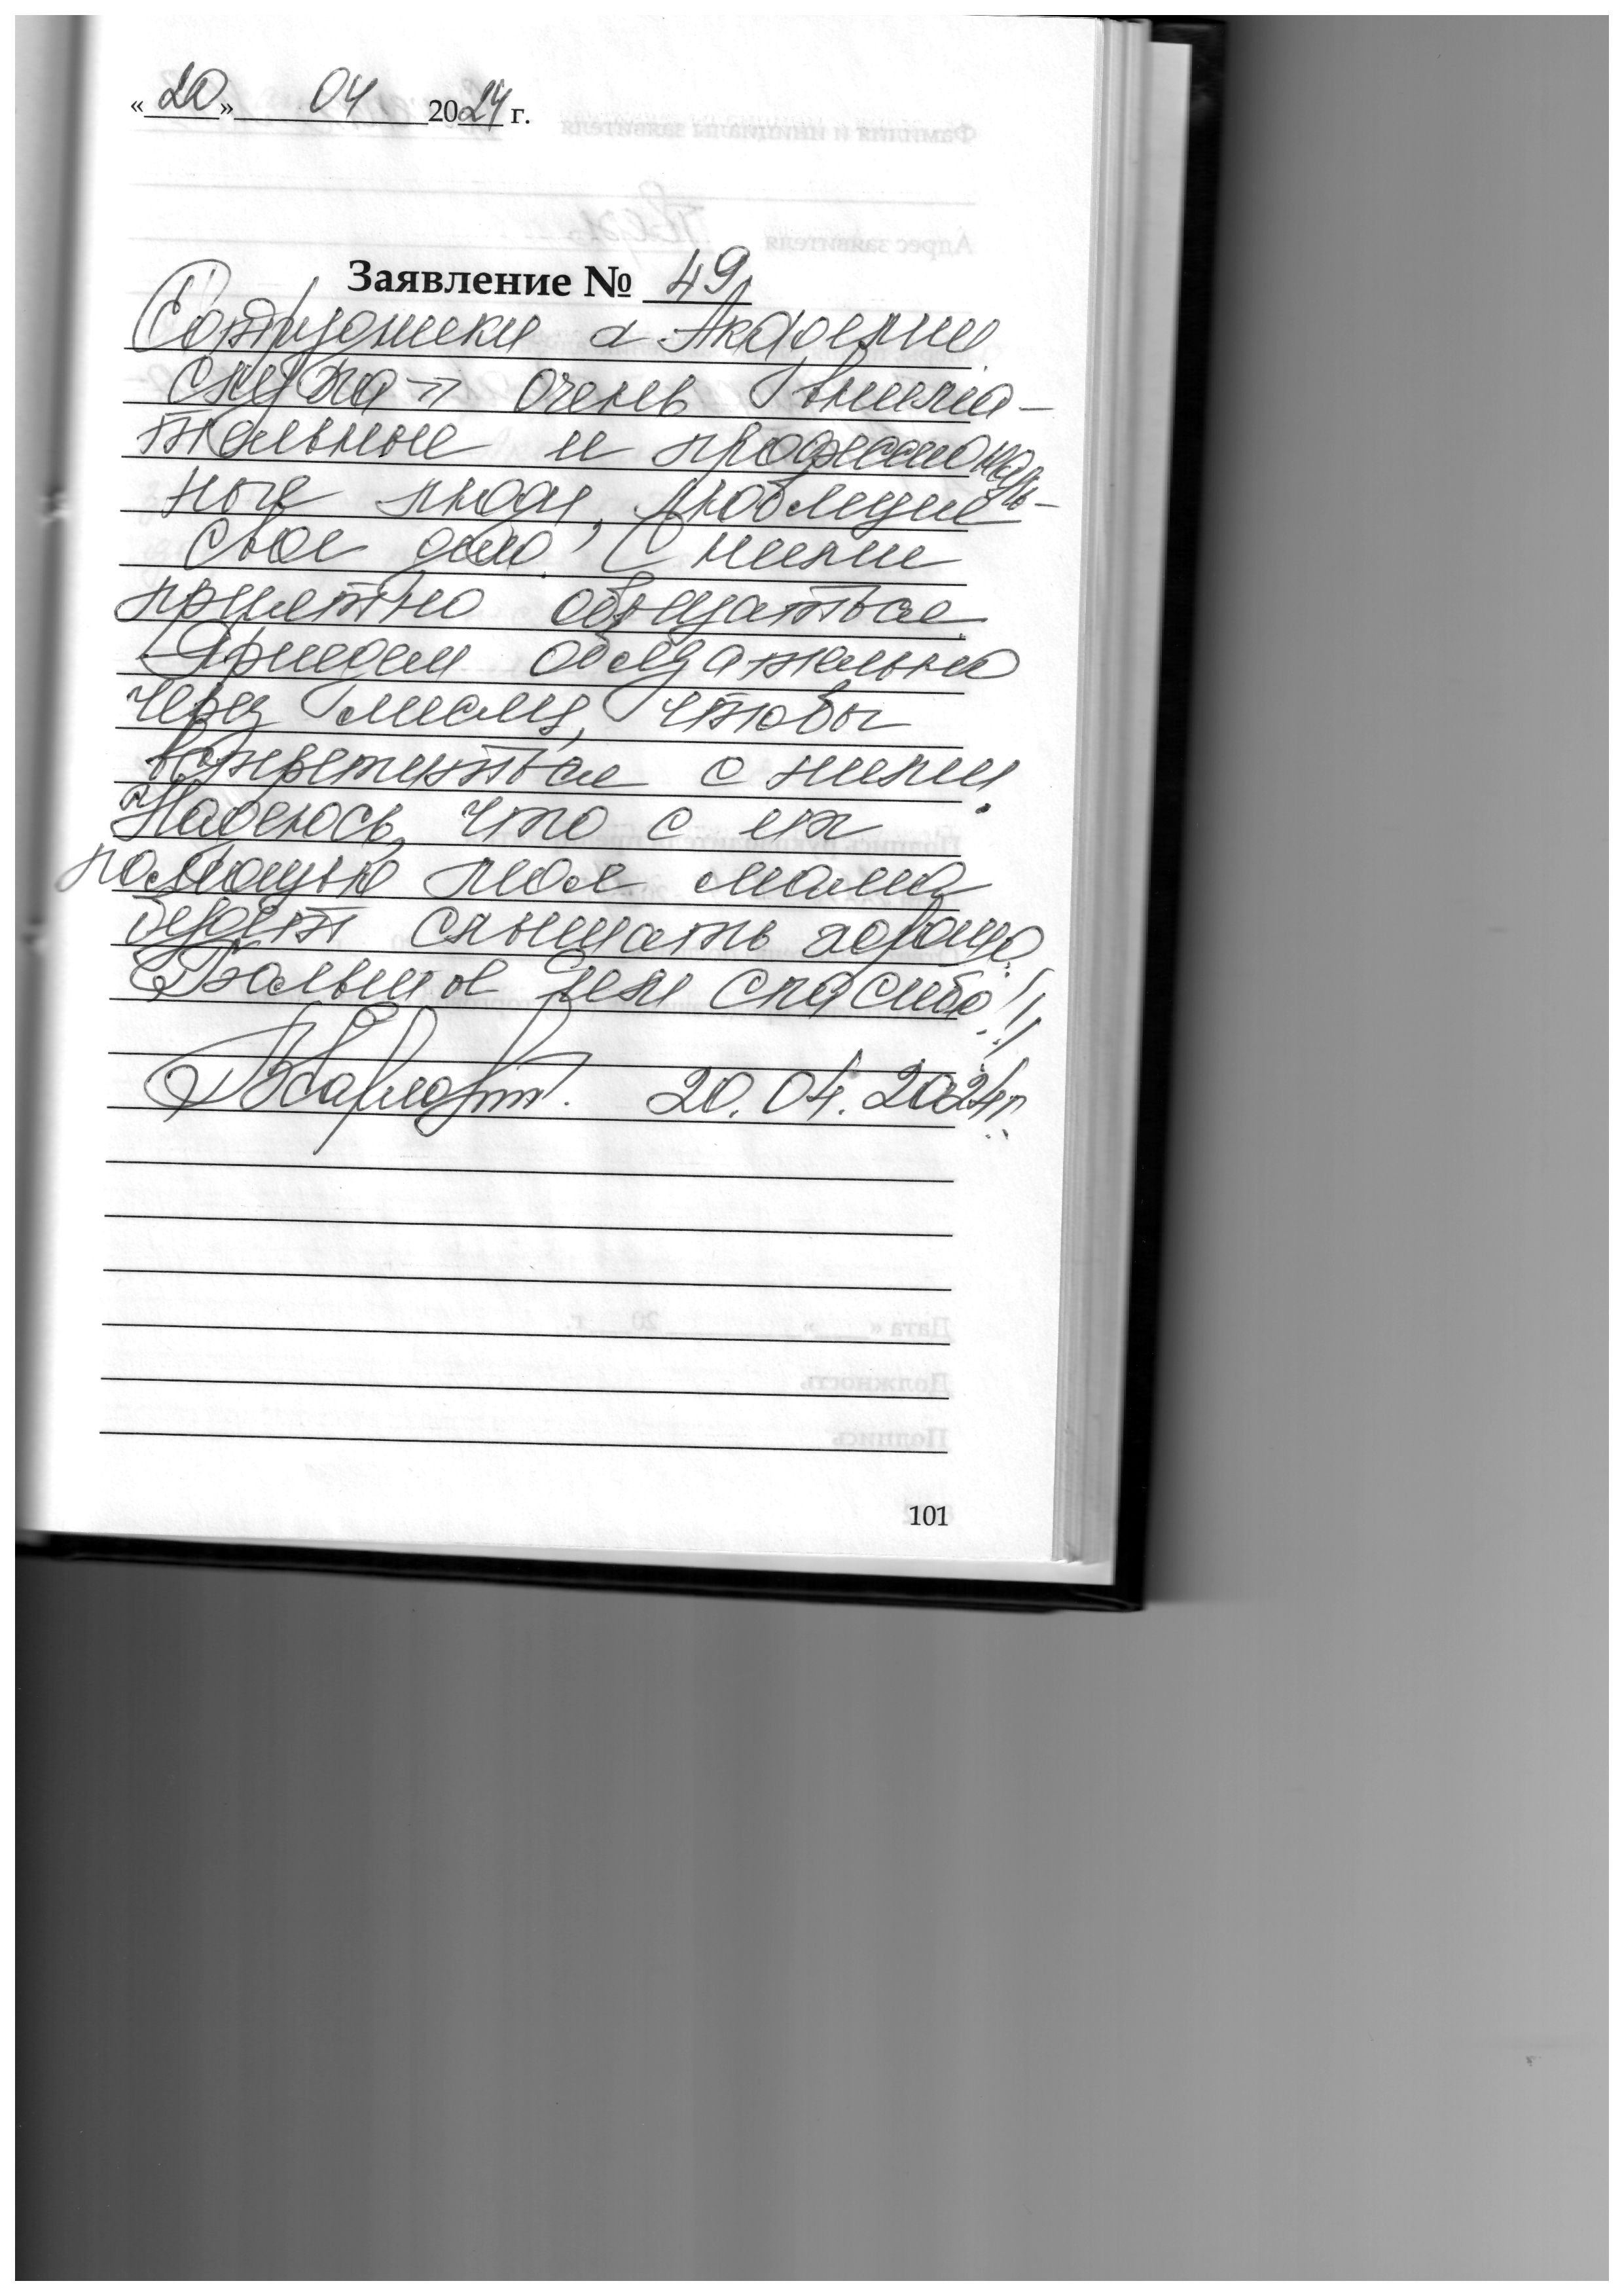 «20» 04 2024 г.
Заявление № 49
Сотрудники «Академии
слуха» очень внима-
тельные и профессиональ-
ные люди, любящие
свое дело. С ними
приятно общаться.
Приедем обязательно
через месяц, чтобы
встретиться с ними.
Надеюсь, что с их
помощью моя мама
будет слышать хорошо.
Большое им спасибо!!!
20.04.2024г.
101